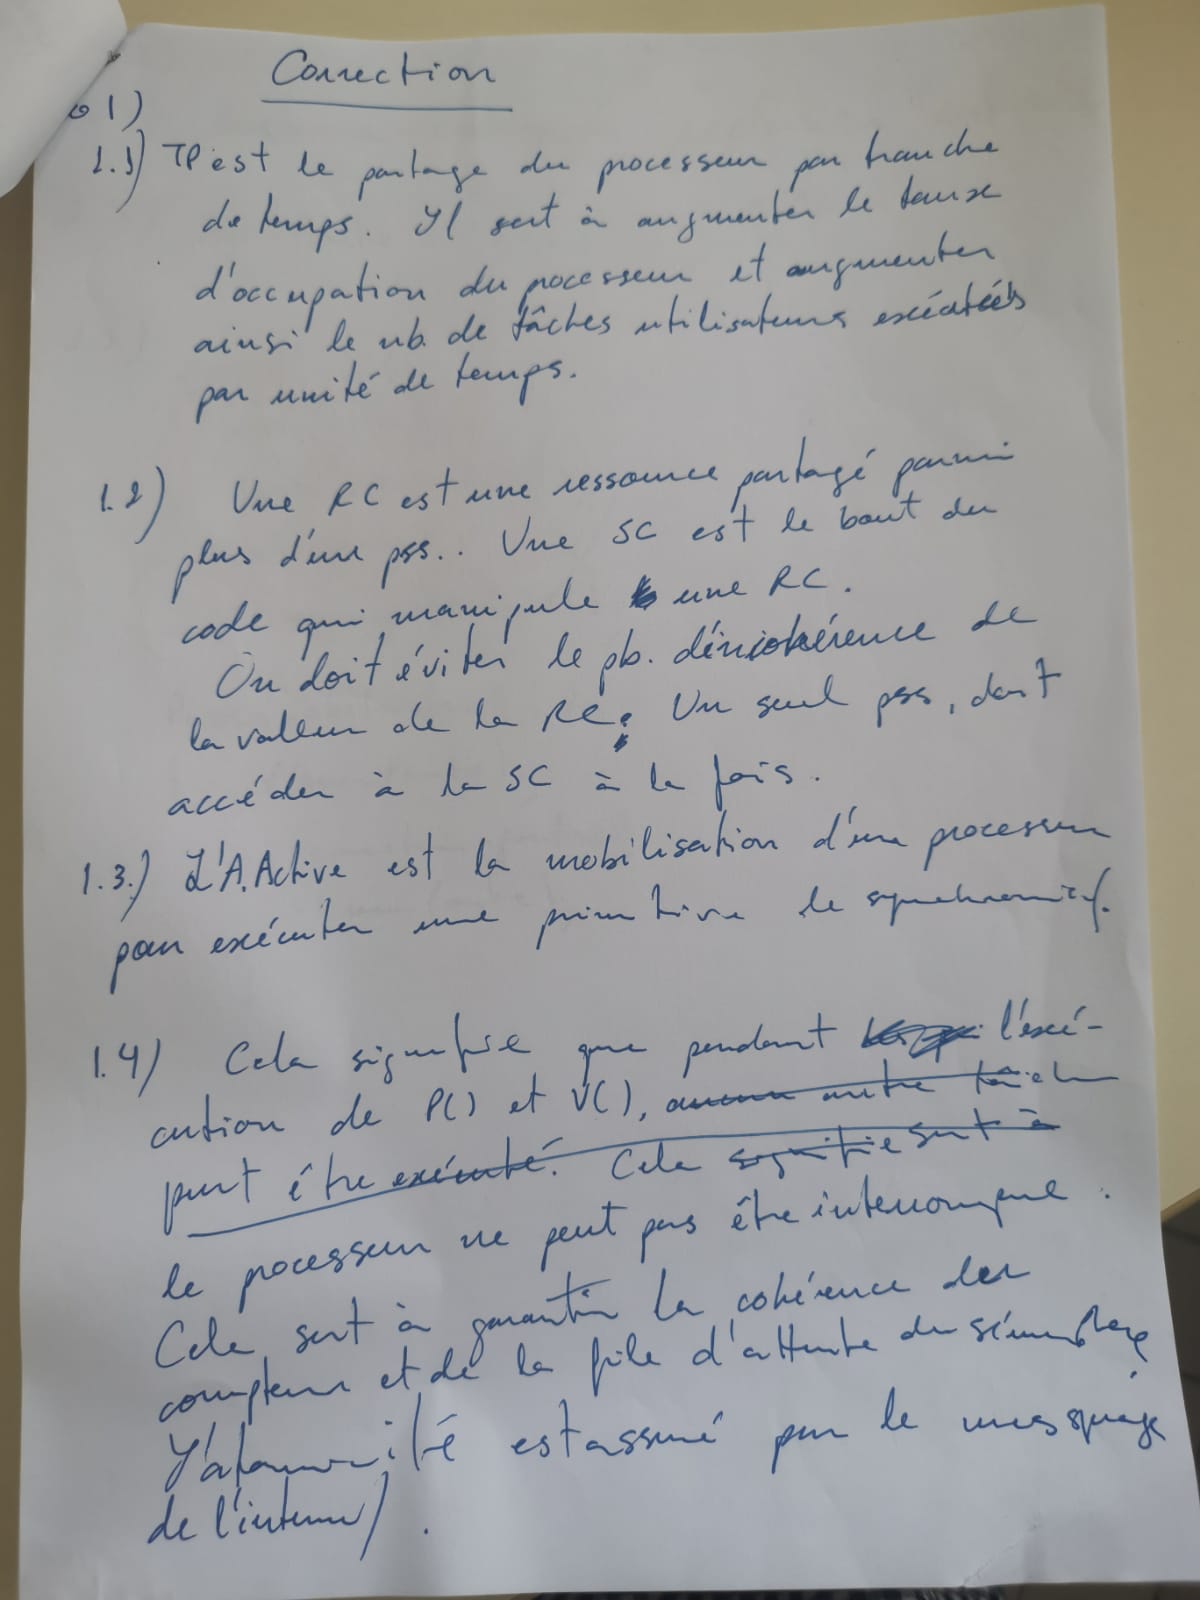 Correction
1)
1.1) TP est le partage du processeur par tranche
de temps. Il sert à augmenter le taux
d'occupation du processeur et augmenter
ainsi le nb. de tâches utilisateurs exécutées
par unité de temps.
1.2) Une RC est une ressource partagé parmi
plus d'un pss.. Une SC est le bout du
code qui manipule une RC.
On doit éviter le pb. d'incohérence de
la valeur de la RC. Un seul pss, doit
accéder à la SC à la fois.
1.3.) L'A.Active est la mobilisation d'un processeur
pour exécuter une primitive de
1.4) Cela signifie que pendant l'exé-
cution de P() et V(), aucun autre tâche
peut être exécuté. Cela signifie sert à
le processeur ne peut pas être interrompue.
Cela sert à garantir la cohérence des
compteur et de la file d'attente du sémaphore
L'atomicité est assuré par le masquage
de